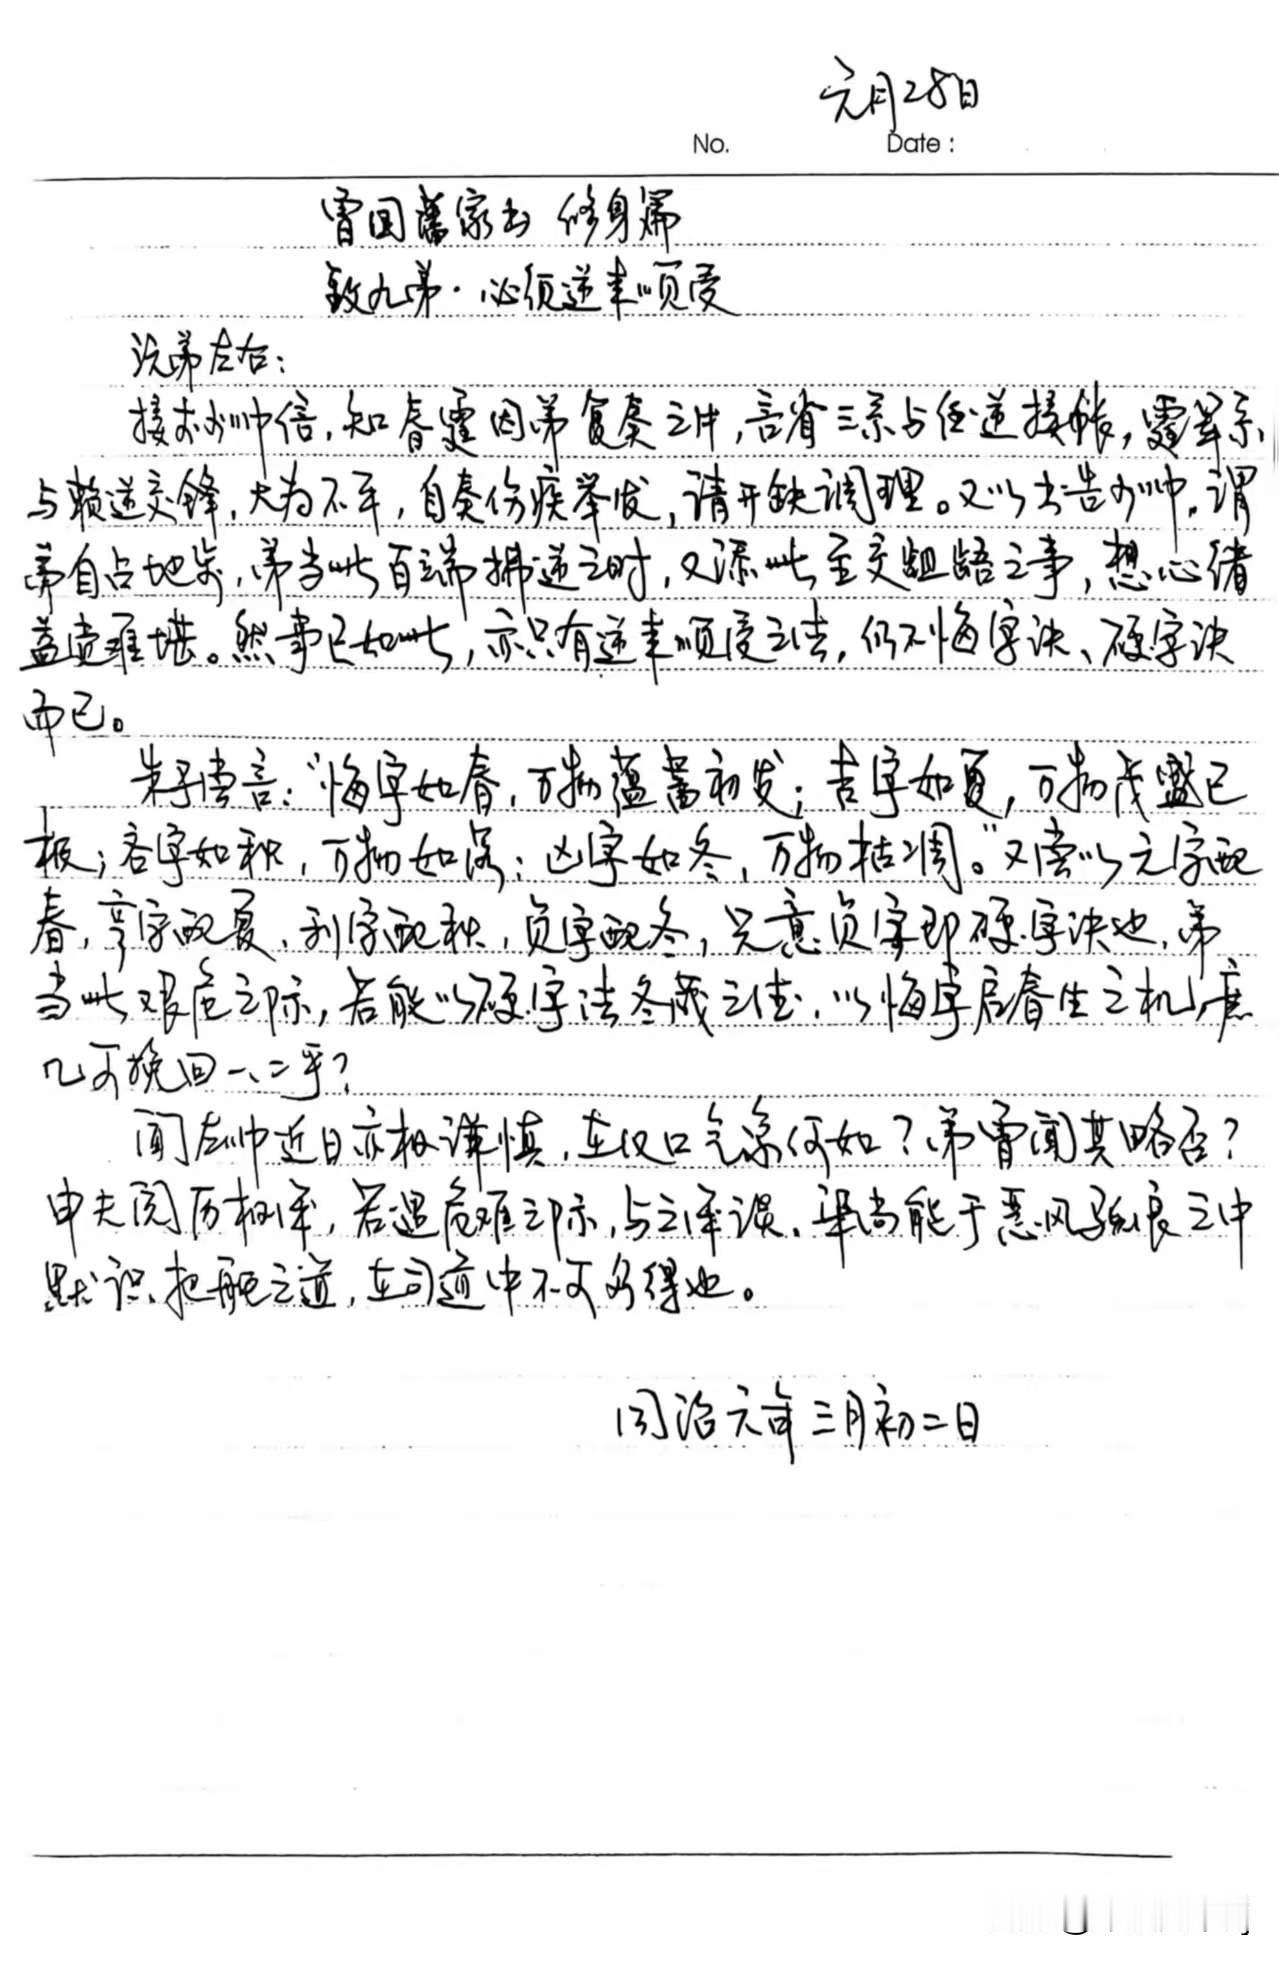 元月28日
No. Date:
曾国藩家书 修身篇
致九弟·必须逆来顺受
沅弟左右:
接少帅信,知春霆因弟复奏之片,言省三系与任逆接帐,霆军系
与赖逆交锋,大为不平,自奏伤疾举发,请开缺调理。又以书告少帅,谓
弟自占地步,弟当此百端拂逆之时,又添此至交龃龉之事,想心绪
益觉难堪。然事已如此,亦只有逆来顺受之法,仍不悔字诀、硬字诀
而已。
朱子尝言:“悔字如春,万物蕴蓄初发;吉字如夏,万物茂盛已
极;吝字如秋,万物如落;凶字如冬,万物枯凋。”又尝以元字配
春,亨字配夏,利字配秋,贞字配冬,兄意贞字即硬字诀也,弟
当此艰危之际,若能以硬字法冬藏之德,以悔字启春生之机,庶
几可挽回一、二乎?
闻左帅近日亦极谦慎,在汉口气象何如?弟曾闻其略否?
申夫阅历极深,若遇危难之际,与之深谈,渠尚能于恶风骇浪之中
默识把舵之道,在司道中不可多得也。
同治元年三月初二日